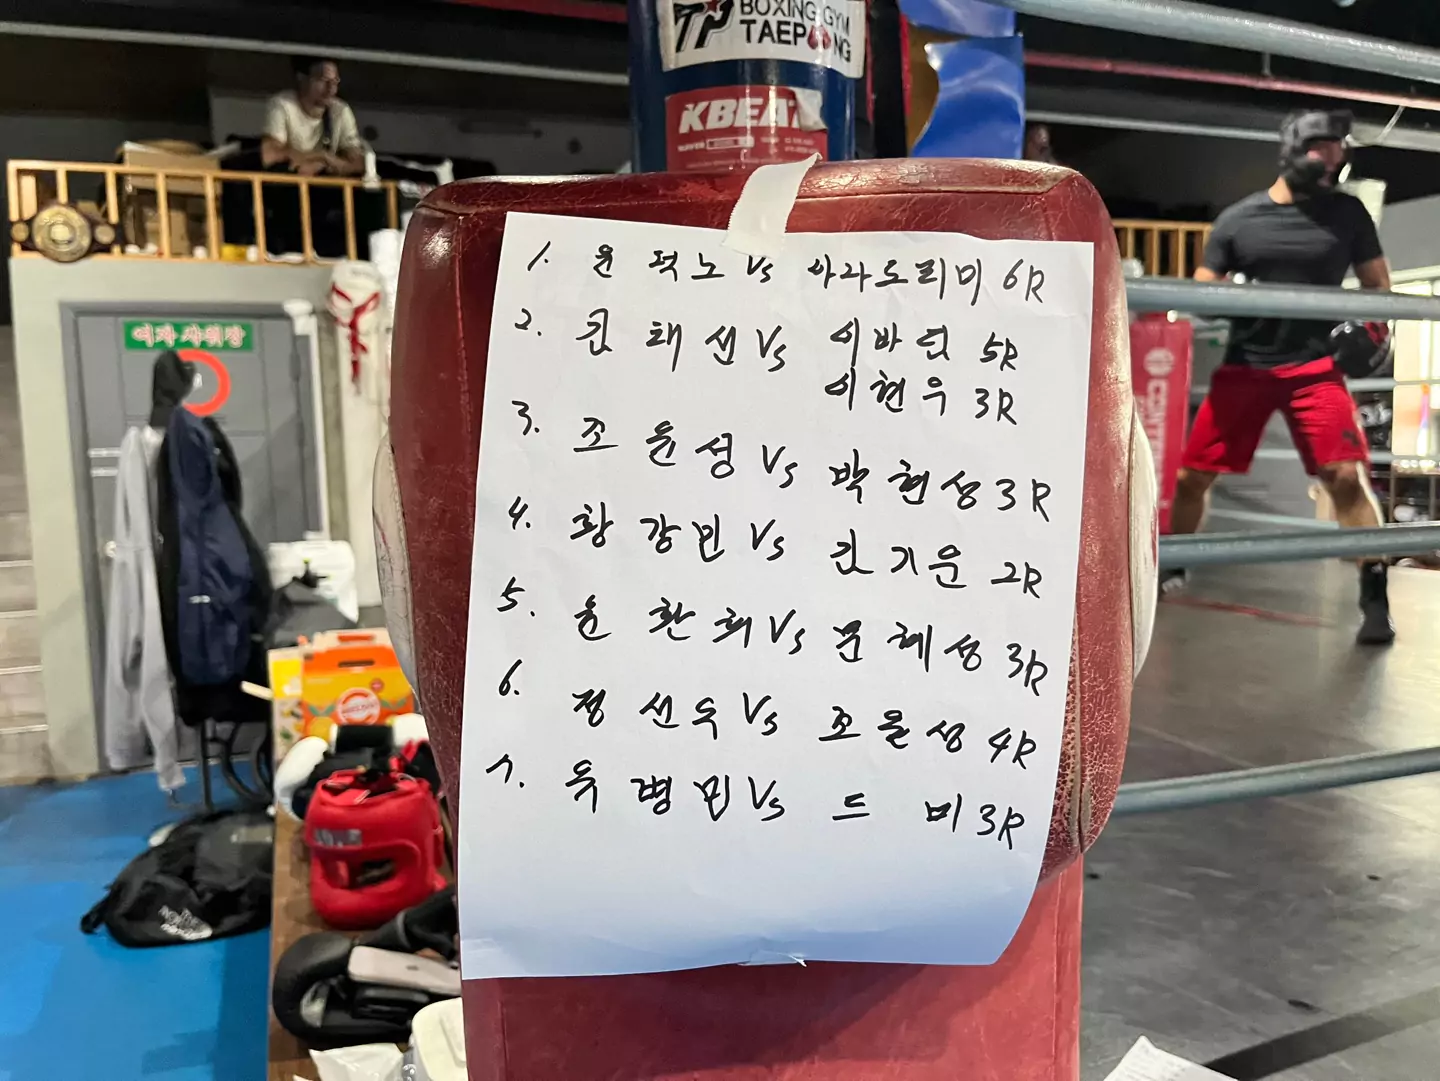 BOXING GYM
TP TAEPUNG
KBEAT
여자 샤워장
1. 윤덕노 Vs 아라도리미 6R
2. 김채선 Vs 이바딘 5R
이현우 3R
3. 조윤성 Vs 박현성 3R
4. 황강민 Vs 김기운 2R
5. 윤환희 Vs 문혜성 3R
6. 정선우 Vs 조율성 4R
7. 옥병민 Vs 드비 3R